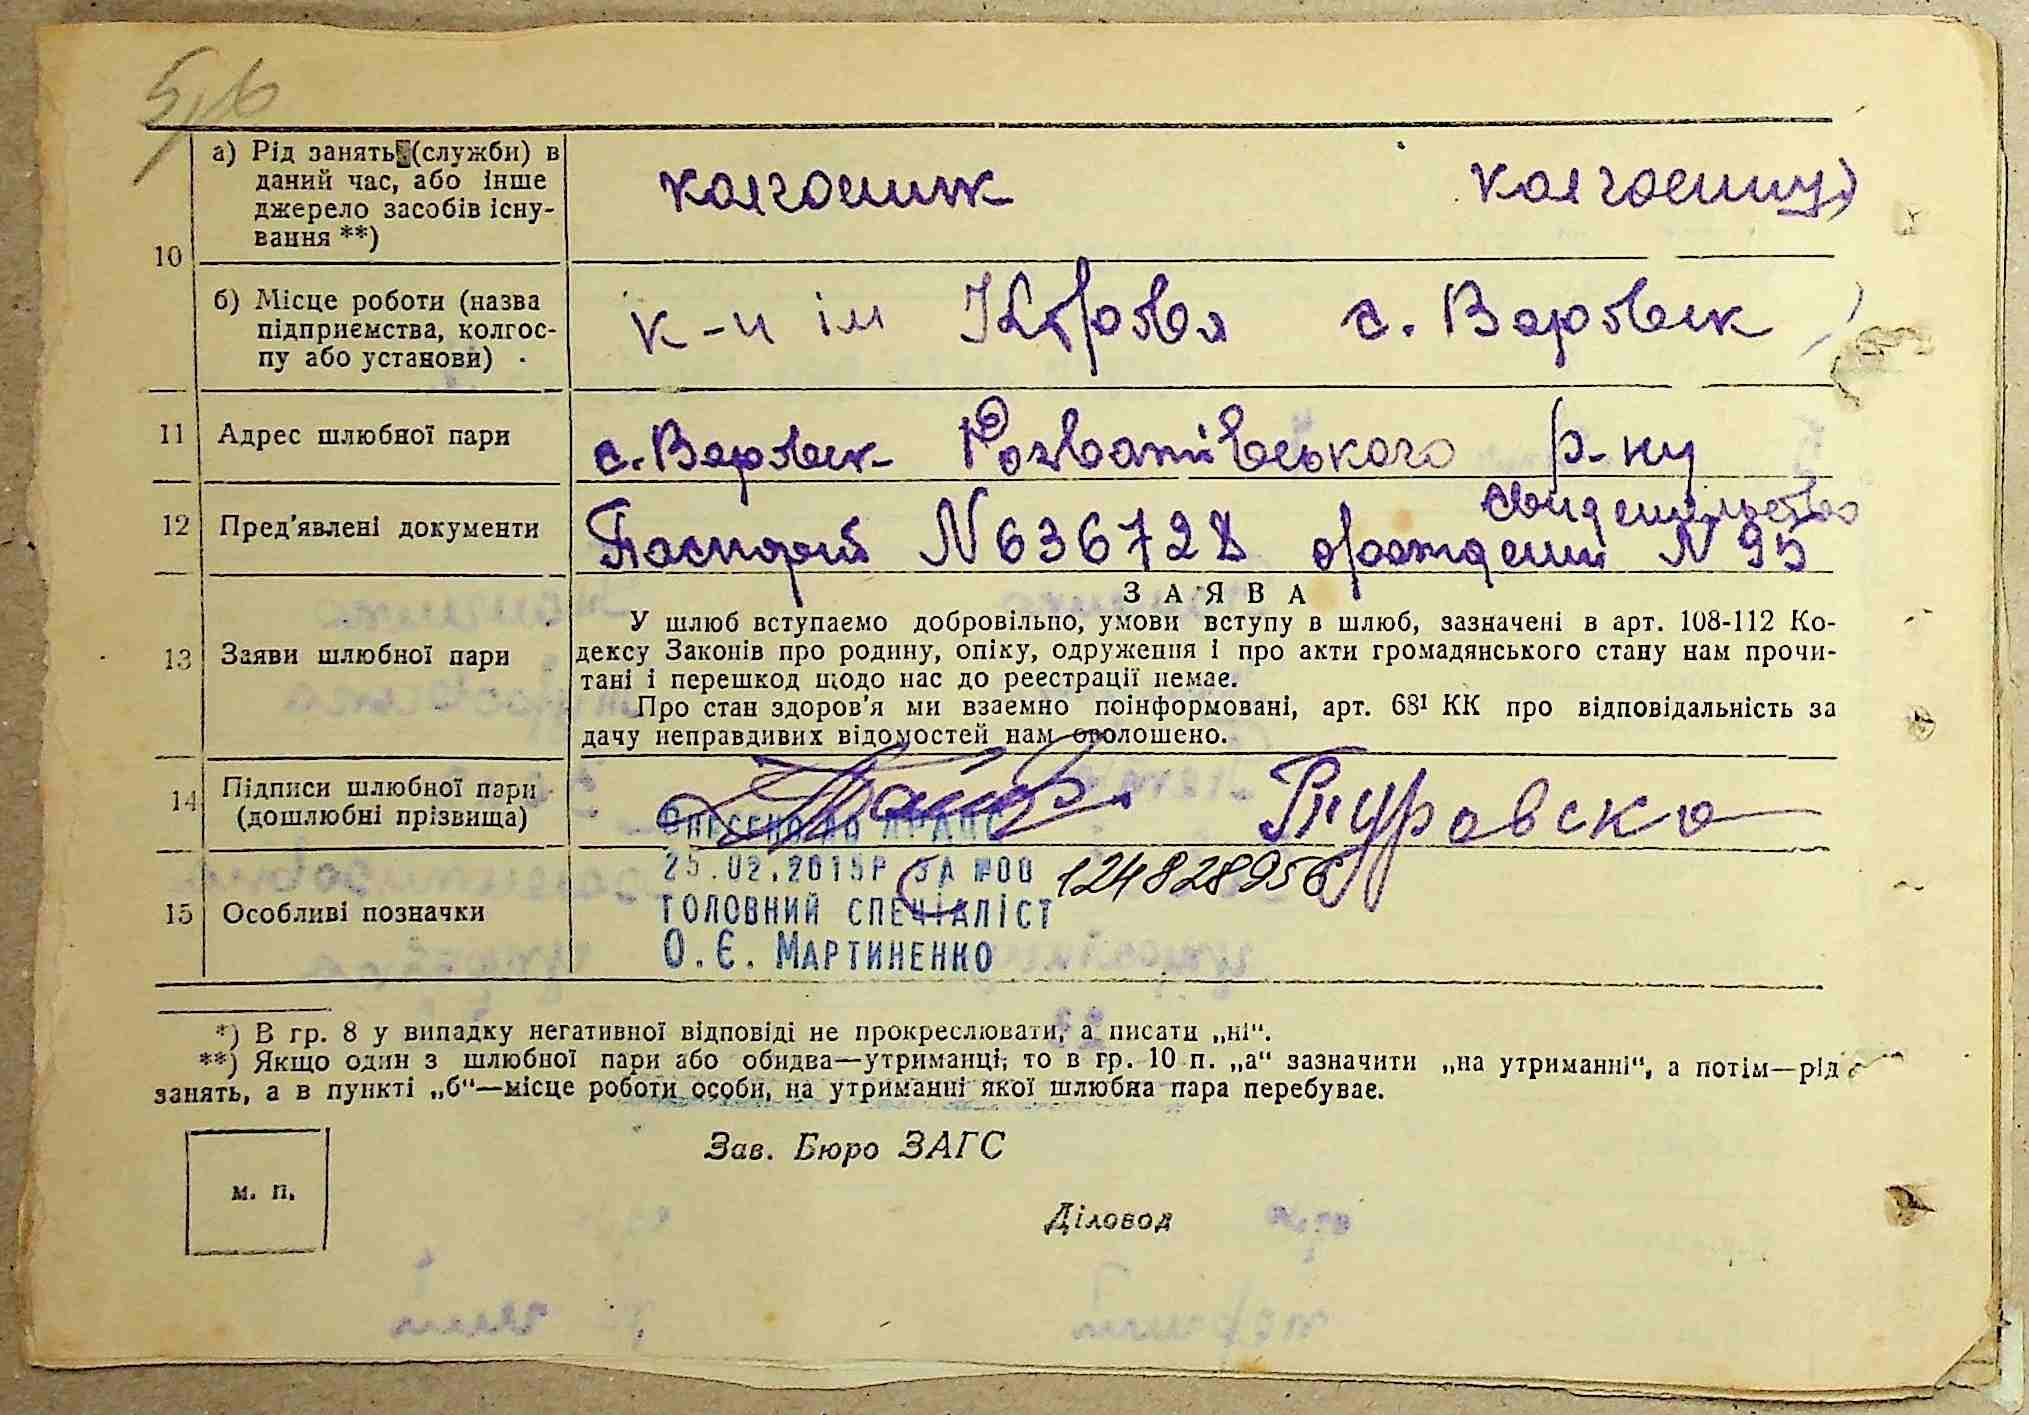 5/6
10
а) Рід занять (служби) в
даний час, або інше
джерело засобів існу-
вання **)
колгоспник колгоспниця
б) Місце роботи (назва
підприємства, колгос-
пу або установи)
к-п ім Кірова с. Варовськ
11 Адрес шлюбної пари
с. Варовськ Розважівського р-ну
12 Пред'явлені документи
Паспорт N 636728 свидетельство
о рождении N 95
З А Я В А
13 Заяви шлюбної пари
У шлюб вступаємо добровільно, умови вступу в шлюб, зазначені в арт. 108-112 Ко-
дексу Законів про родину, опіку, одруження і про акти громадянського стану нам прочи-
тані і перешкод щодо нас до реєстрації немає.
Про стан здоров'я ми взаємно поінформовані, арт. 68¹ КК про відповідальність за
дачу неправдивих відомостей нам оголошено.
14 Підписи шлюбної пари
(дошлюбні прізвища)
Туровска
15 Особливі позначки
Внесено до ДРАЦС
25.02.2015р за №00 124828956
головний спеціаліст
О.Є. Мартиненко
*) В гр. 8 у випадку негативної відповіді не прокреслювати, а писати „ні“.
**) Якщо один з шлюбної пари або обидва—утриманці, то в гр. 10 п. „а“ зазначити „на утриманні“, а потім—рід
занять, а в пункті „б“—місце роботи особи, на утриманні якої шлюбна пара перебуває.
Зав. Бюро ЗАГС
м. п.
Діловод